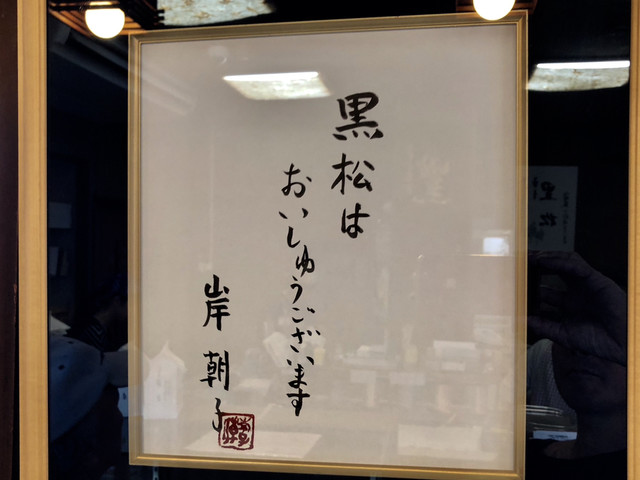 黒松は
おいしゅうございます
岸朝子
黒松